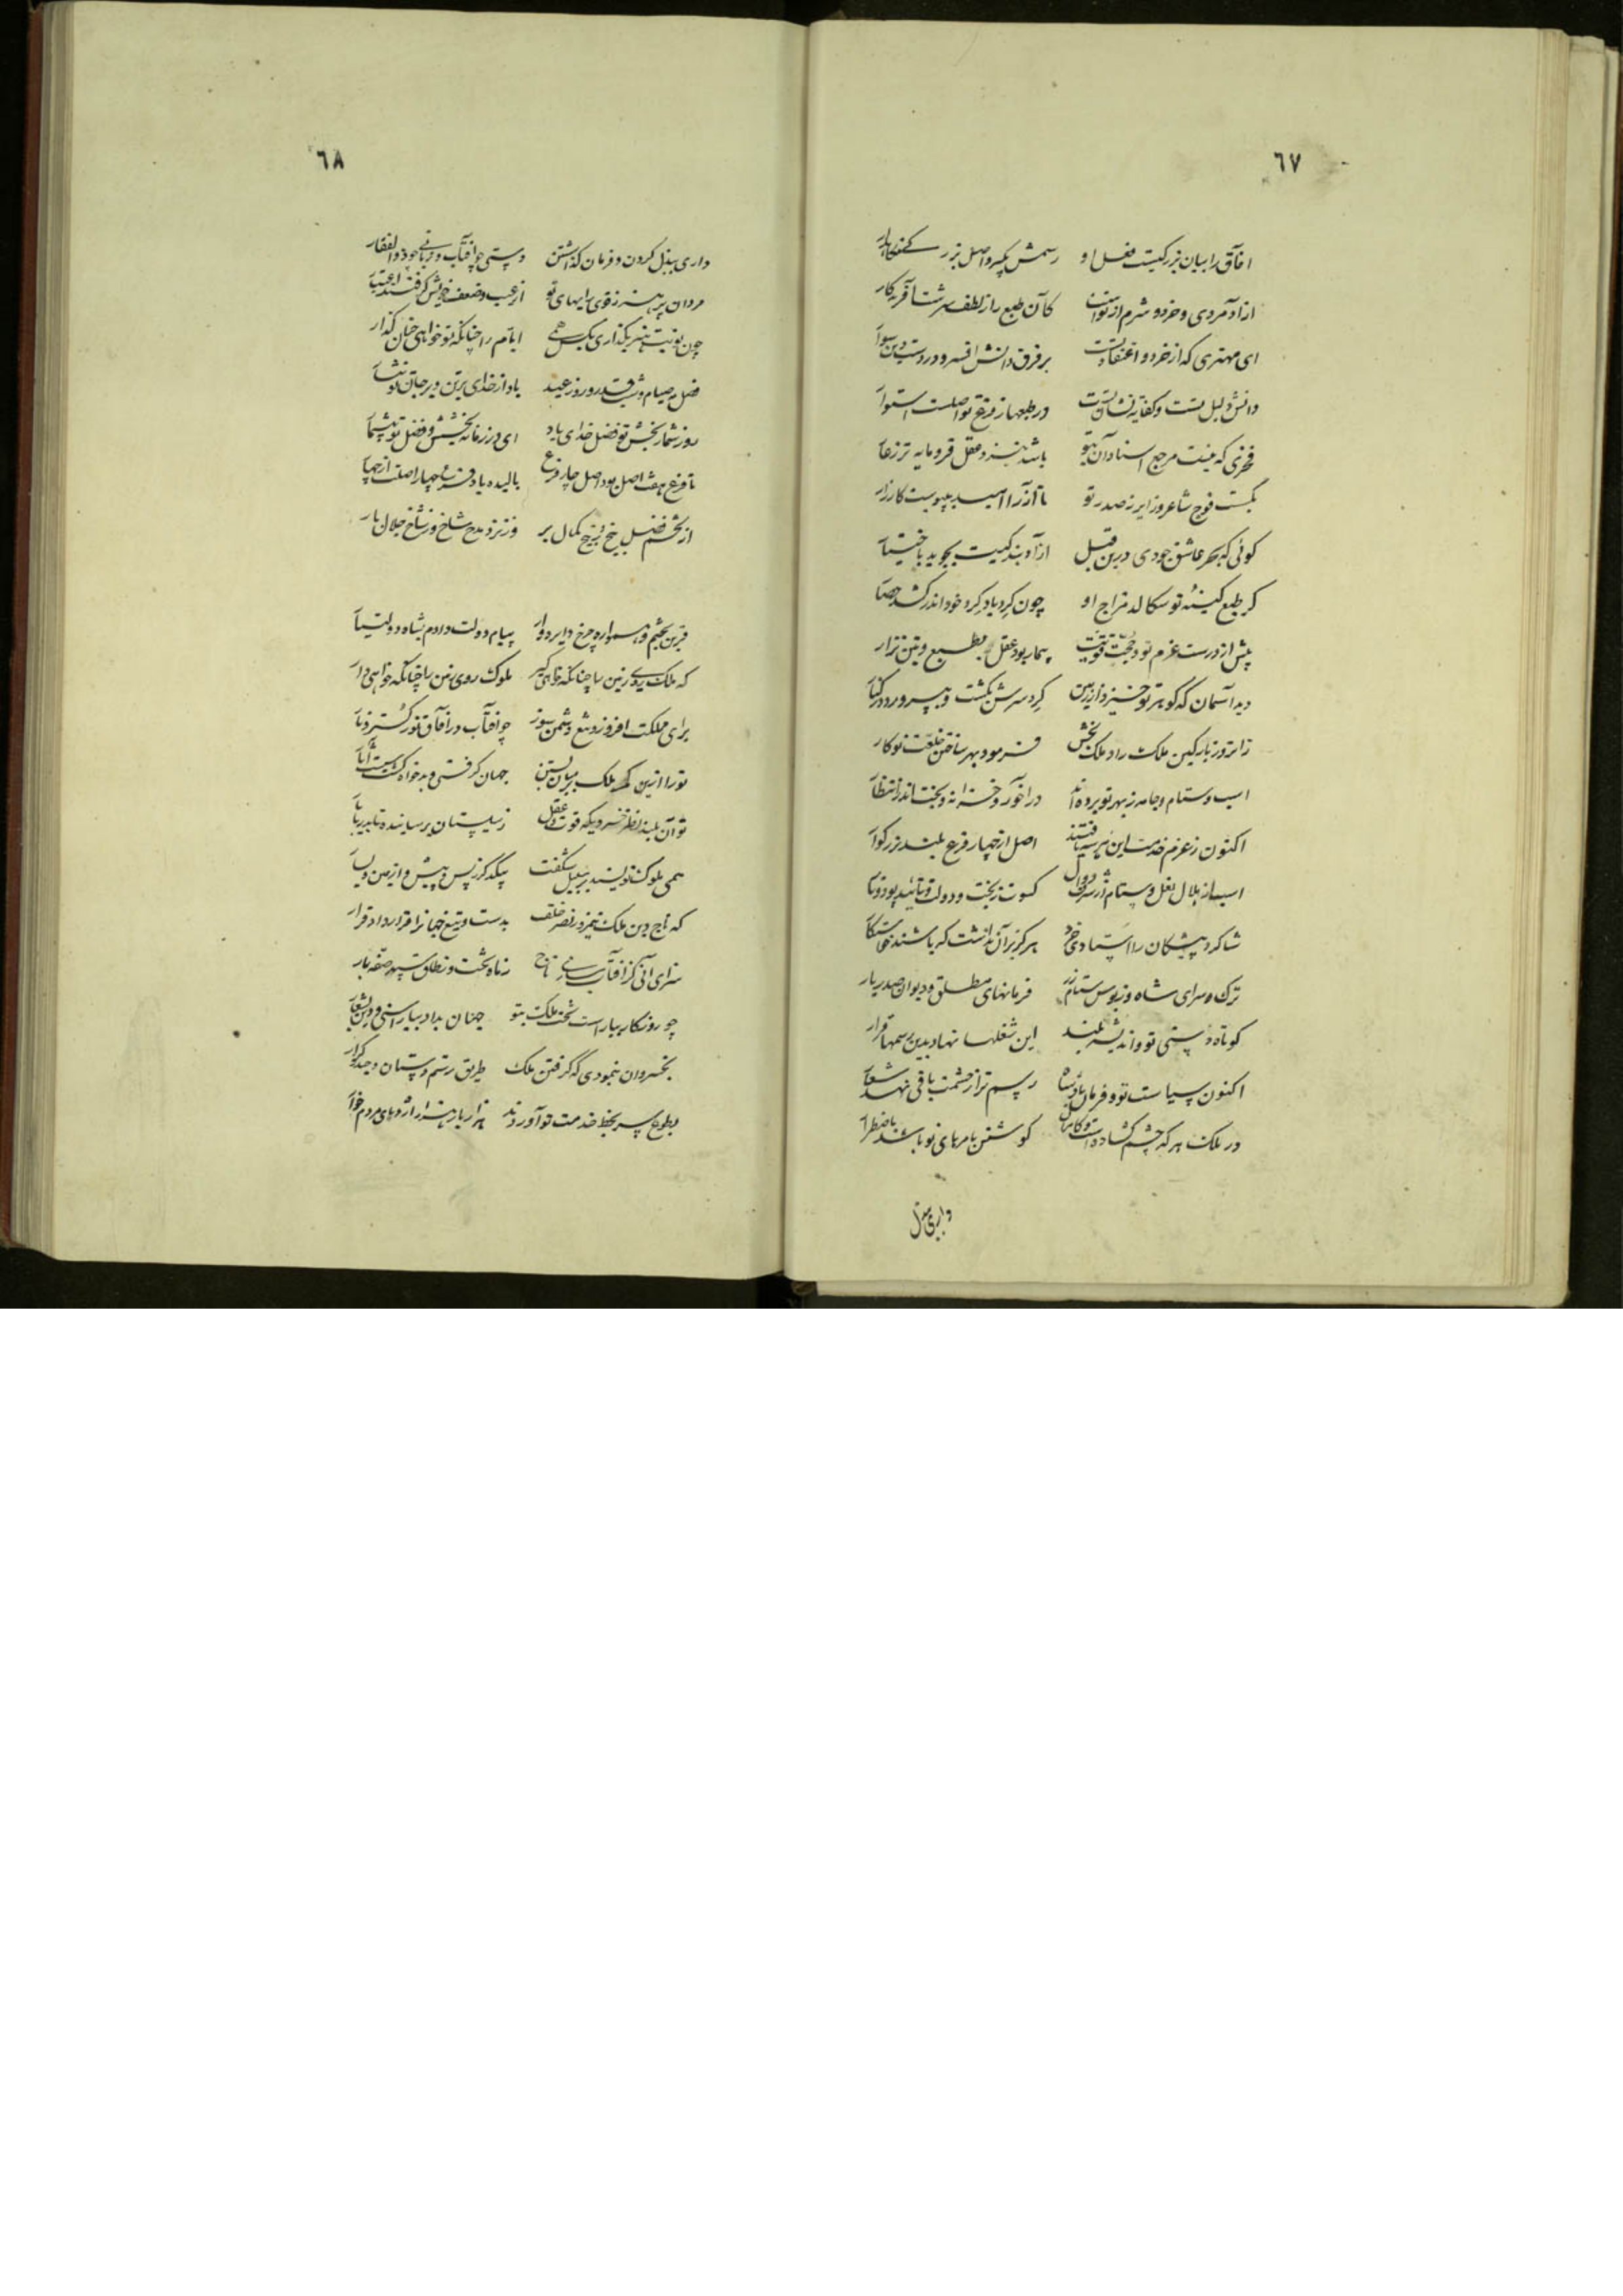 ٦٧
افاق را بیان بزرگیست فضل او رسمش پیکر و اصل بزر
ازاد مردی و خرد و شرم از تو کان طبع را ز لطف سرشت آفریدکار
ای مهتری که از خرد و اعتقاد تست بر فرق دانش افسر و در دست دین سوار
دانش دلیل تست و کفایه نشان تست در طبعها ز فرع تو اصلست استوار
فخری که نیست مرجع اسناد آن بتو باشد بنزد عقل فرومایه تر ز عار
بگست فوج شاعر و زایر ز صدر تو تا از را امید بپیوست کارزار
کوئی که بحر عاشق جودی درین قبل از اد بند کیست بجوید باختیار
کر طبع کینهٔ تو سکالد مزاج او چون کرد باد کرد خود اندر کشد حصار
پیش از درست عزم تو و حجت قویت بیمار بود عقل بطبع و بتن نزار
دید آسمان که کوهر تو خیزد از زمین کرد سرش بگشت و بپرورد در کنار
زان روز باز کین ملک راد ملک بخش فرمود بهر ساختن خلعت تو کار
اسب و ستام و جامه ز بهر تو برده اند در اخور و خزانه و بخت اندر انتظار
اکنون ز عزم خدمت این اصل از چهار فرع بلند بزرکوار
اسب از هلال نعل و ستام کسوت ز بخت و دولت و تائید پود و تار
شاکرد پیشکان را استادی خرد هرکز بر آن نداشت که باشند
ترک و سرای شاه و زبوس ستام زر فرمانهای مطلق و دیوان صدر بار
کوتاه دستی تو و اندیشه بلند این شغلها نهاد بدین رسمها قرار
اکنون سیاست تو و فرمان پادشاه رسم تر از حشمت باقی نهد شعار
در ملک هر که چشم کشاده است کوشش بامرهای تو باشد باضطرار
داری ببذل
٦٨
داری ببذل کردن و فرمان کذاشتن دستی چو افتاب و زبانی چو ذوالفقار
مردان پر هنر ز قوی رایهای تو از عیب و ضعف خویش کرفتند اعتبار
چون نوبت هنر بگذاری بکس همی ایام را چنانکه تو خواهی چنان کذار
فضل مه صیام و شب قدر و روز عید باد از خدای بر تن و بر جانت
روز شمار بخش تو فضل خدای باد ای در زمانه بخشش و فضل تو بیشمار
تا فرع هفت اصل بود اصل چار فرع بالیده باد فرع چهار اصلت از چهار
از تخم فضل بیخ و ز بیخ کمال بر وز نزد مدح شاخ و ز شاخ جلال بار
قرین بچشم و همواره چرخ دایره وار پیام دولت دادم بشاه دولتیار
که ملک روی زمین را چنانکه خواهی کیر ملوک روی زمین را چنانکه خواهی دار
برای مملکت افروز و تیغ دشمن سوز چو افتاب در افاق نور کستر و نار
تو را ازین کمر ملک بر میان بستن جهان کرفتی و بدخواه
تو آن بلند نظر خسروی که قوت عقل ز سیستان برساننده تا بدریا
همی ملوک نویسند بر سبیل شگفت بیکدکر ز پس و پیش و از یمین و یسار
که تاج دین ملک نیمروز نصر خلف بدست و تیغ جهانرا قرار داد قرار
سزای آنی کز افتاب سازی تاج ز ماه تخت و نطاق سپهر صفه بار
چو روزکار بیاراست تخت ملک بتو جهان بداد بیاراستی و دین
بخسروان بنمودی که کرفتن ملک طریق رستم دستان و حیدر کرار
بطوع سر بخط خدمت تو آوردند هزار بار هزار اژدهای مردم خوار